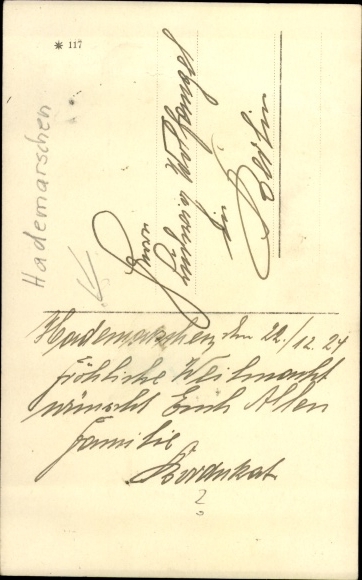 ✳ 117
Hademarschen
Herrn
Ludwig
in
Berlin
Hademarschen, den 22./12.24
fröhliche Weihnacht
wünscht Euch Allen
Familie
Kordukat
?